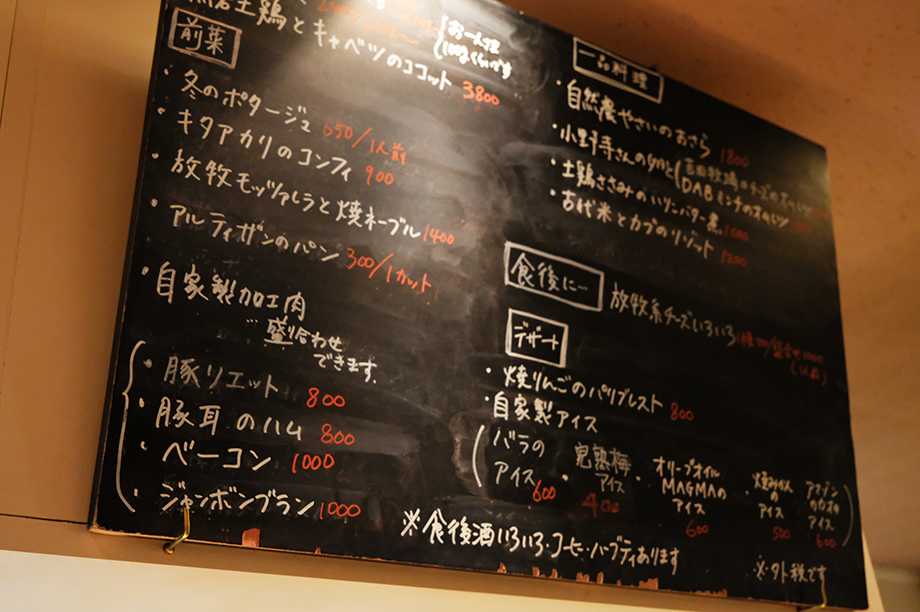 土鶏とキャベツのココット 3800
お一人さま
100gくらいです
前菜
・冬のポタージュ 650/1人前
・キタアカリのコンフィ 900
・放牧モッツァレラと焼ネーブル 1400
・アルティザンのパン 300/1カット
・自家製加工肉
盛り合わせ
できます.
・豚リエット 800
・豚耳のハム 800
・ベーコン 1000
・ジャンボンブラン 1000
一品料理
・自然農やさいのおさら 1800
・小野寺さんの卵と
吉田牧場のチーズのオムレツ
・土鶏ささみのいりこバター煮 1000
・古代米とカブのリゾット 1200
食後に…
放牧系チーズいろいろ
(1人前)
デザート
・焼りんごのパリブレスト 800
・自家製アイス
バラの
アイス
600
・完熟梅
アイス
400
・オリーブオイル
MAGMAの
アイス
600
・焼みかん
の
アイス
500
・アマゾン
カカオの
アイス
600
※食後酒いろいろ・コーヒー・ハーブティあります
※外税です